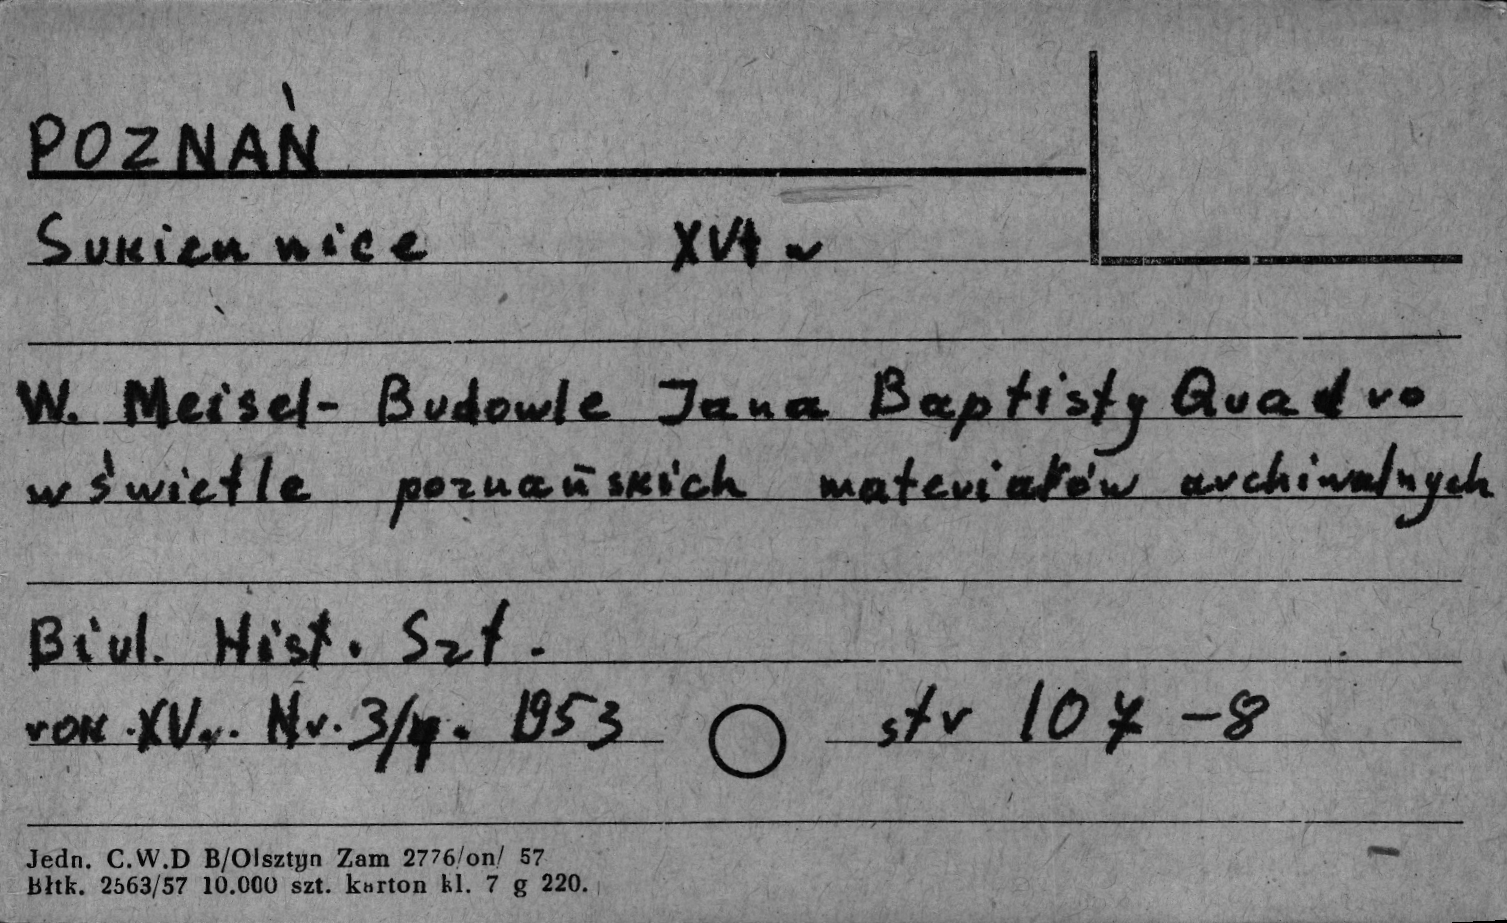 POZNAŃ
Sukiennice XVI w
W. Meisel - Budowle Jana Baptisty Quadro
w świetle poznańskich materiałów archiwalnych
Biul. Hist. Szt.
rok XV. Nr. 3/4. 1953 str 107-8
Jedn. C.W.D B/Olsztyn Zam 2776/on/ 57
Błtk. 2563/57 10.000 szt. karton kl. 7 g 220.